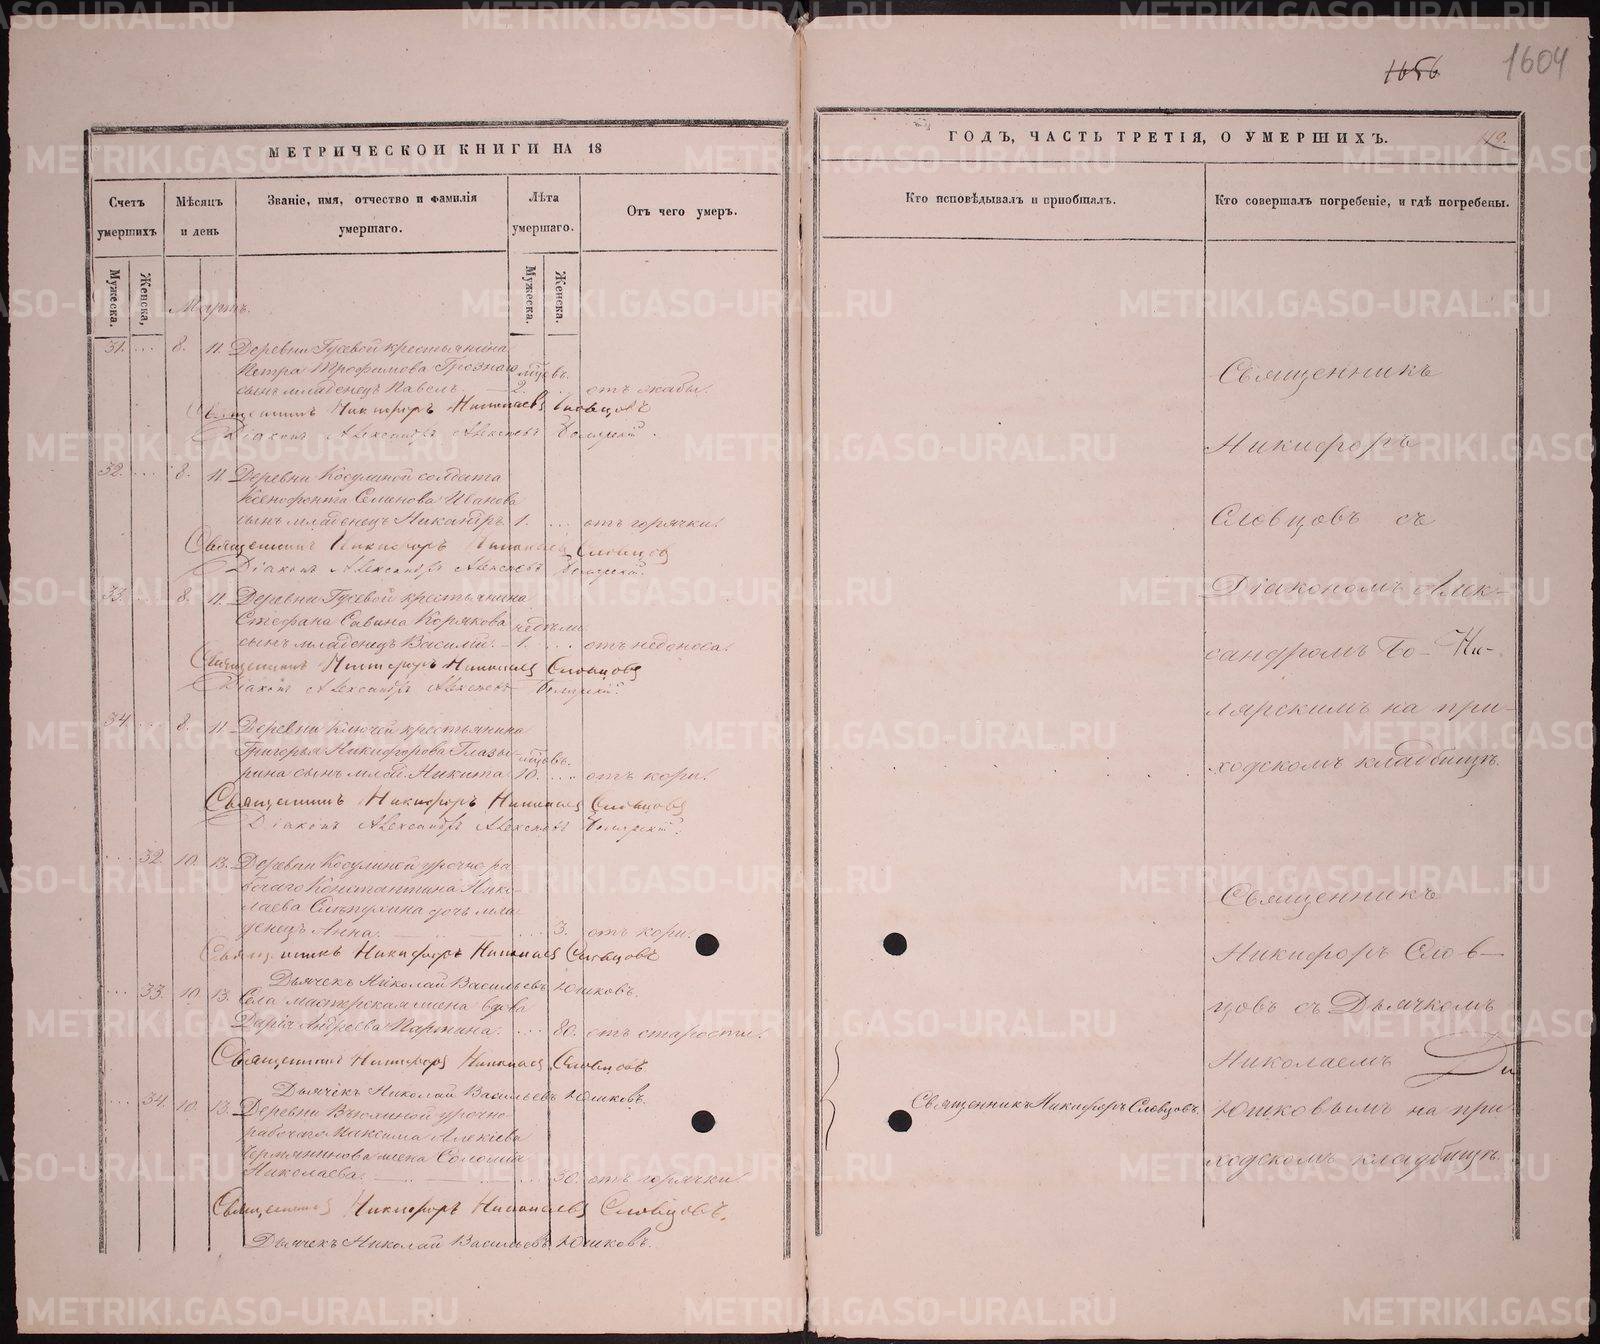 1656
1604
МЕТРИЧЕСКОЙ КНИГИ НА 18
ГОДЪ, ЧАСТЬ ТРЕТІЯ, О УМЕРШИХЪ.
Счетъ умершихъ
Мѣсяцъ и день
Званіе, имя, отчество и фамилія умершаго.
Лѣта умершаго.
Отъ чего умеръ.
Кто исповѣдывалъ и пріобщалъ.
Кто совершалъ погребеніе, и гдѣ погребены.
Мужеска.
Женска.
Мужеска.
Женска.
Мартъ.
31. ... 8. 11. Деревни Гусевой крестьянина
Петра Трофимова мѣсцовъ.
сынъ младенецъ Павелъ. — 2. от жабы.
Священникъ Никифоръ Николаевъ Словцовъ
Діаконъ Александръ Алексѣевъ
32. ... 8. 11. Деревни Косулиной солдата
Ксенофонта Семенова Иванова
сынъ младенецъ Никандръ 1. ... отъ горячки.
Священникъ Никифоръ Николаевъ Словцовъ
Діаконъ Александръ Алексѣевъ
33. ... 8. 11. Деревни Гусевой крестьянина
Стефана Савина Корякова недѣли
сынъ младенецъ Василій. — 1. ... отъ недоноса.
Священникъ Никифоръ Николаевъ Словцовъ
Діаконъ Александръ Алексѣевъ
34. ... 8. 11. Деревни Ключей крестьянина
Григорья Никифорова Глазы- мѣсцовъ.
рина сынъ млад. Никита 10. ... отъ кори.
Священникъ Никифоръ Николаевъ Словцовъ
Діаконъ Александръ Алексѣевъ
... 32. 10. 13. Деревни Косулиной урочно-ра
бочаго Константина Нико-
лаева дочь мла
денецъ Анна. ... 3. отъ кори.
Священникъ Никифоръ Николаевъ Словцовъ
Дьячекъ Николай Васильевъ Юшковъ.
... 33. 10. 13. Села мастерская жена вдова
Дарія Андреева ... 80. отъ старости.
Священникъ Никифоръ Николаевъ Словцовъ.
Дьячекъ Николай Васильевъ Юшковъ.
34. 10. 13. Деревни урочно-
рабочаго Максима
жена Соломія
Николаева. ... 30. отъ горячки.
Священникъ Никифоръ Николаевъ Словцовъ.
Дьячекъ Николай Васильевъ Юшковъ.
Священникъ
Никифоръ
Словцовъ съ
Діакономъ Алек-
сандромъ Бо-
лярскимъ на при-
ходскомъ кладбищѣ.
Священникъ
Никифоръ Слов-
цовъ съ Дьячкомъ
Николаемъ
Священникъ Никифоръ Словцовъ.
Юшковымъ на при-
ходскомъ кладбищѣ.
METRIKI.GASO-URAL.RU